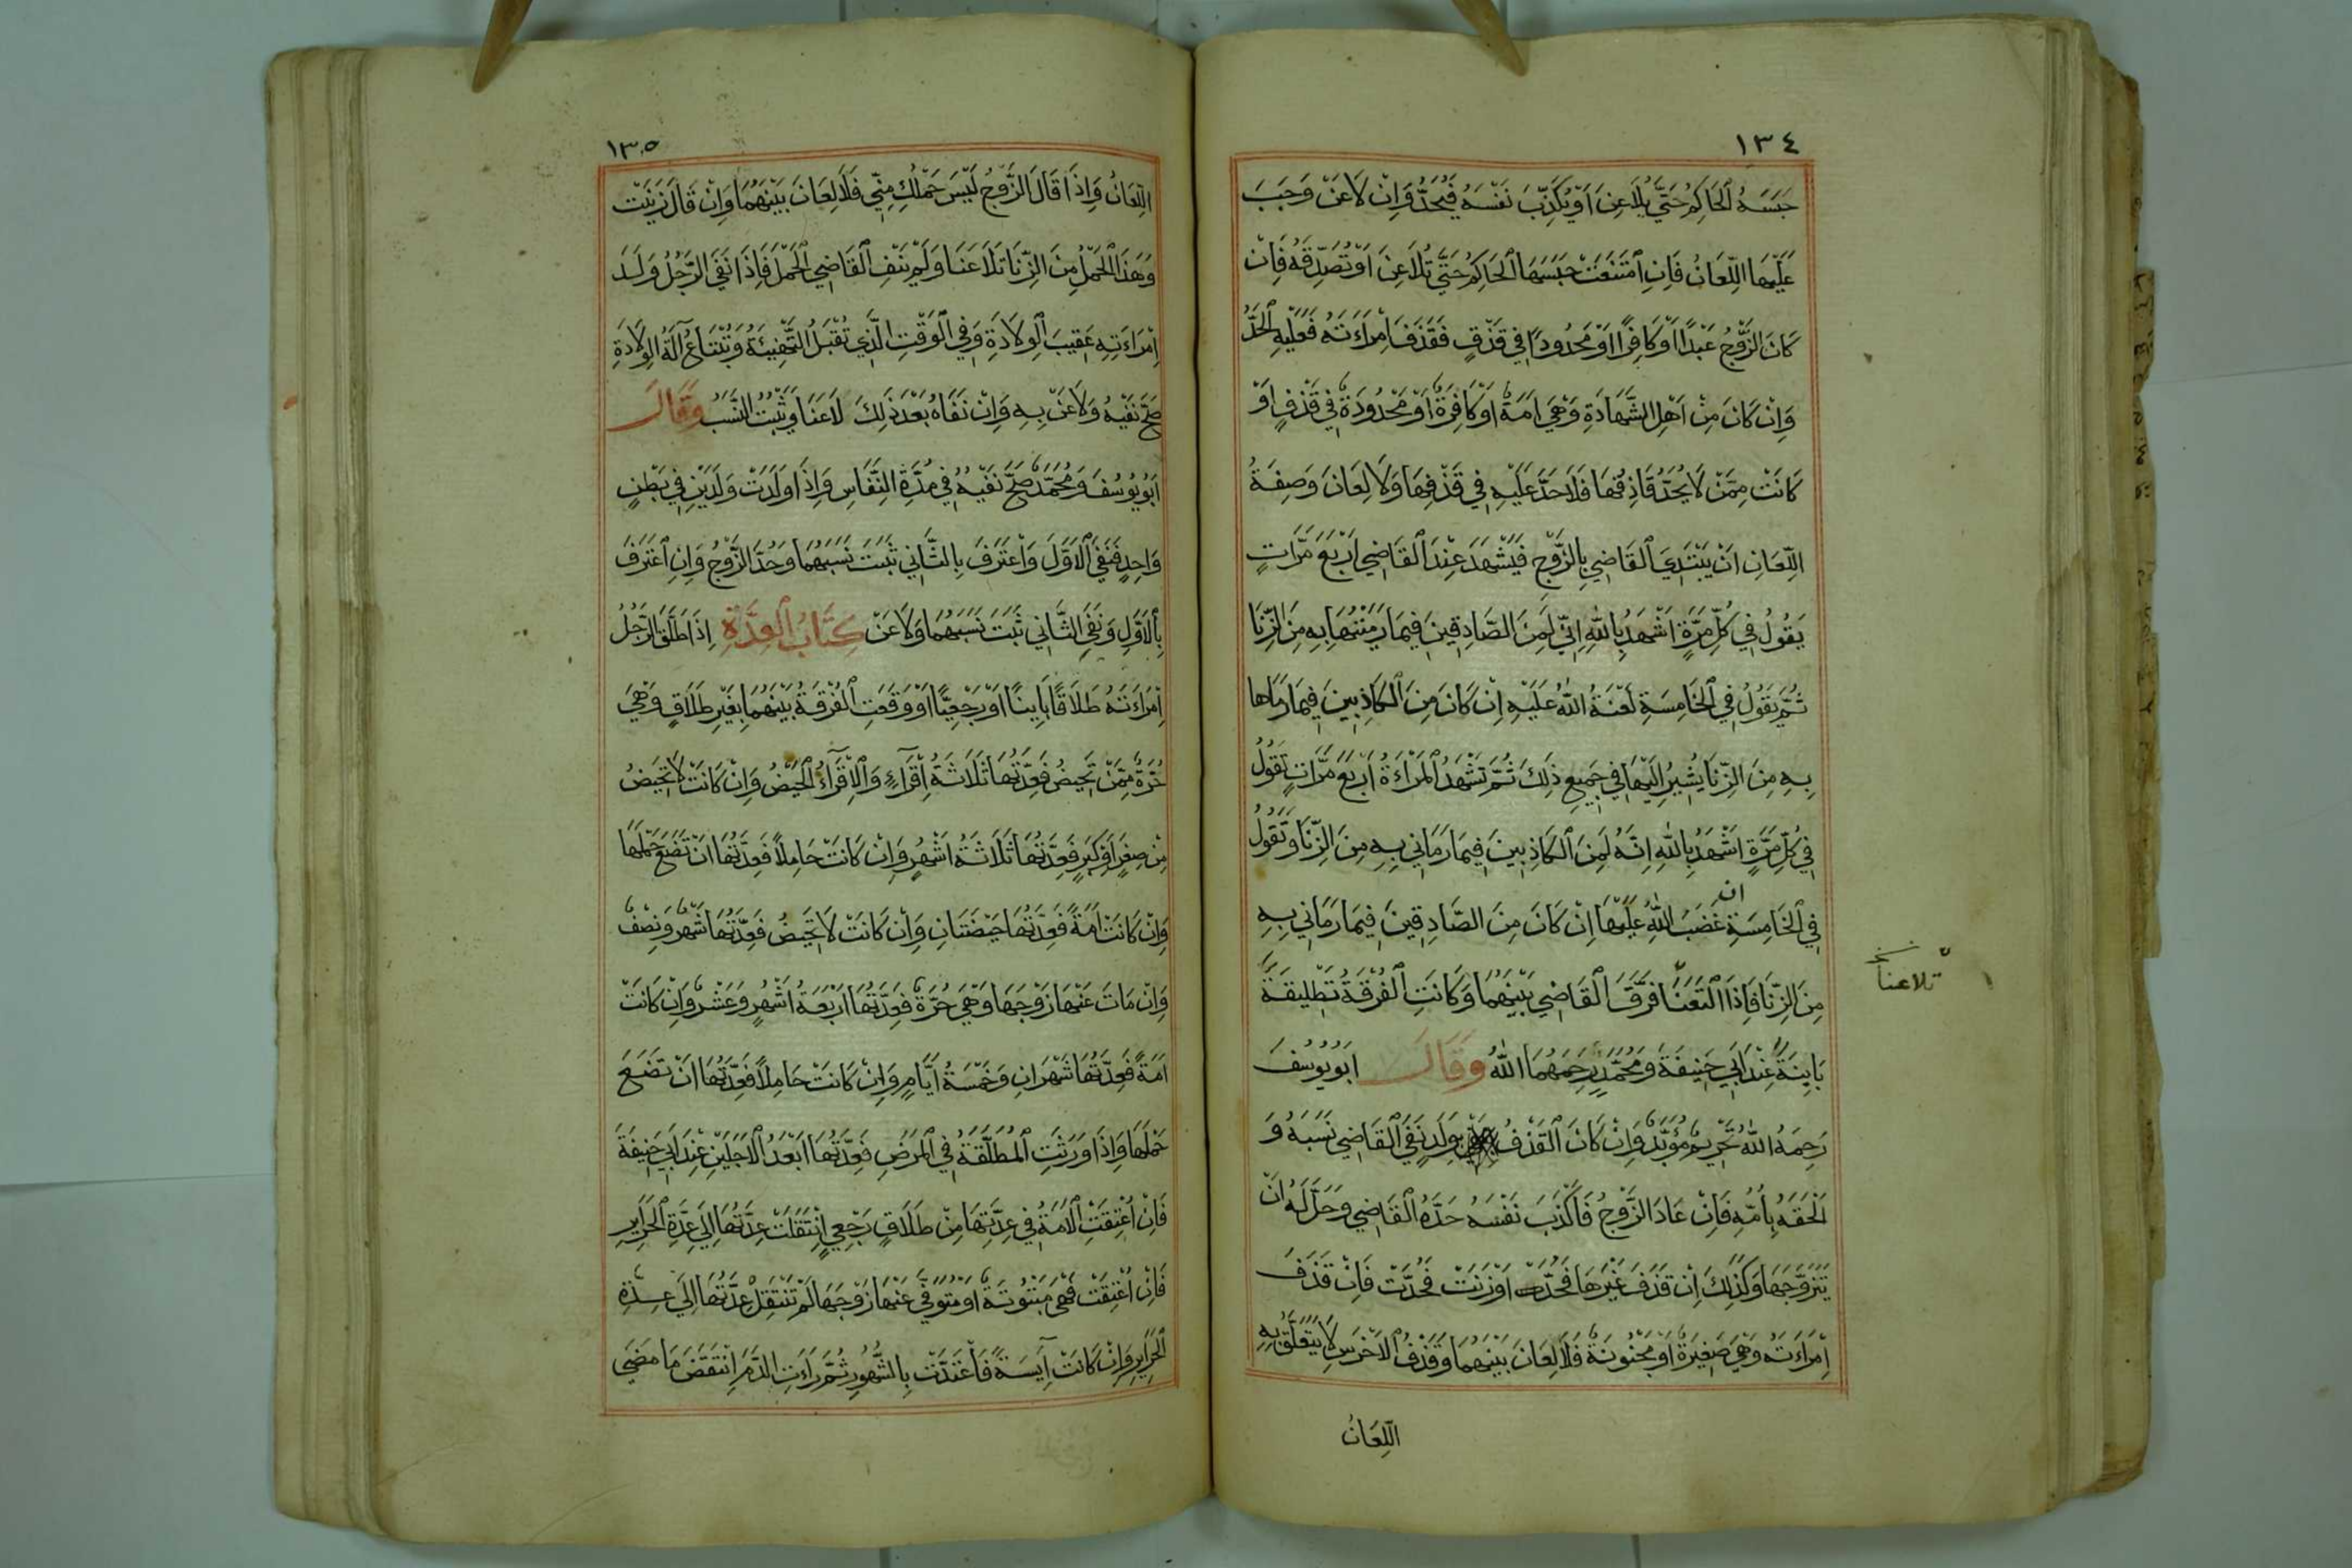 ١٣٤
حَبَسَهُ الْحَاكِمُ حَتَّى يُلَاعِنَ اَوْ يُكَذِّبَ نَفْسَهُ فَيُحَدُّ وَاِنْ لَاعَنَ وَجَبَ
عَلَيْهَا اللِّعَانُ فَاِنِ امْتَنَعَتْ حَبَسَهَا الْحَاكِمُ حَتَّى تُلَاعِنَ اَوْ تُصَدِّقَهُ فَاِنْ
كَانَ الزَّوْجُ عَبْدًا اَوْ كَافِرًا اَوْ مَحْدُودًا فِي قَذْفٍ فَقَذَفَ اِمْرَاَتَهُ فَعَلَيْهِ الْحَدُّ
وَاِنْ كَانَ مِنْ اَهْلِ الشَّهَادَةِ وَهِيَ اَمَةٌ اَوْ كَافِرَةٌ اَوْ مَحْدُودَةٌ فِي قَذْفٍ اَوْ
كَانَتْ مِمَّنْ لَا يُحَدُّ قَاذِفُهَا فَلَا حَدَّ عَلَيْهِ فِي قَذْفِهَا وَلَا لِعَانَ وَصِفَةُ
اللِّعَانِ اَنْ يَبْتَدِيَ الْقَاضِي بِالزَّوْجِ فَيَشْهَدَ عِنْدَ الْقَاضِي اَرْبَعَ مَرَّاتٍ
يَقُولُ فِي كُلِّ مَرَّةٍ اَشْهَدُ بِاللّٰهِ اِنِّي لَمِنَ الصَّادِقِينَ فِيمَا رَمَيْتُهَا بِهِ مِنَ الزِّنَا
ثُمَّ يَقُولُ فِي الْخَامِسَةِ لَعْنَةُ اللّٰهِ عَلَيْهِ اِنْ كَانَ مِنَ الْكَاذِبِينَ فِيمَا رَمَاهَا
بِهِ مِنَ الزِّنَا يُشِيرُ اِلَيْهَا فِي جَمِيعِ ذٰلِكَ ثُمَّ تَشْهَدُ الْمَرْاَةُ اَرْبَعَ مَرَّاتٍ تَقُولُ
فِي كُلِّ مَرَّةٍ اَشْهَدُ بِاللّٰهِ اِنَّهُ لَمِنَ الْكَاذِبِينَ فِيمَا رَمَانِي بِهِ مِنَ الزِّنَا وَتَقُولُ
ان
فِي الْخَامِسَةِ غَضَبُ اللّٰهِ عَلَيْهَا اِنْ كَانَ مِنَ الصَّادِقِينَ فِيمَا رَمَانِي بِهِ
مِنَ الزِّنَا فَاِذَا الْتَعَنَا فَرَّقَ الْقَاضِي بَيْنَهُمَا وَكَانَتِ الْفُرْقَةُ تَطْلِيقَةً
تلاعنا
بَايِنَةً عِنْدَ اَبِي حَنِيفَةَ وَمُحَمَّدٍ رَحِمَهُمَا اللّٰهُ وَقَالَ اَبُو يُوسُفَ
رَحِمَهُ اللّٰهُ تَحْرِيمٌ مُؤَبَّدٌ وَاِنْ كَانَ الْقَذْفُ بِوَلَدٍ نَفَى الْقَاضِي نَسَبَهُ وَ
اَلْحَقَهُ بِاُمِّهِ فَاِنْ عَادَ الزَّوْجُ فَاَكْذَبَ نَفْسَهُ حَدَّهُ الْقَاضِي وَحَلَّ لَهُ اَنْ
يَتَزَوَّجَهَا وَكَذٰلِكَ اِنْ قَذَفَ غَيْرَهَا فَحُدَّ اَوْ زَنَتْ فَحُدَّتْ فَاِنْ قَذَفَ
اِمْرَاَتَهُ وَهِيَ صَغِيرَةٌ اَوْ مَجْنُونَةٌ فَلَا لِعَانَ بَيْنَهُمَا وَقَذْفُ الْاَخْرَسِ لَا يَتَعَلَّقُ بِهِ
اللِّعَانُ
١٣٥
اللِّعَانُ وَاِذَا قَالَ الزَّوْجُ لَيْسَ حَمْلُكِ مِنِّي فَلَا لِعَانَ بَيْنَهُمَا وَاِنْ قَالَ زَنَيْتِ
وَهَذَا الْحَمْلُ مِنَ الزِّنَا تَلَاعَنَا وَلَمْ يَنْفِ الْقَاضِي الْحَمْلَ فَاِذَا نَفَى الرَّجُلُ وَلَدَ
اِمْرَاَتِهِ عَقِيبَ الْوِلَادَةِ وَفِي الْوَقْتِ الَّذِي تُقْبَلُ التَّهْنِيَةُ وَتُبْتَاعُ آلَةُ الْوِلَادَةِ
صَحَّ نَفْيُهُ وَلَاعَنَ بِهِ وَاِنْ نَفَاهُ بَعْدَ ذٰلِكَ لَاعَنَا وَثَبَتَ النَّسَبُ وَقَالَ
اَبُو يُوسُفَ وَمُحَمَّدٌ صَحَّ نَفْيُهُ فِي مُدَّةِ النِّفَاسِ وَاِذَا وَلَدَتْ وَلَدَيْنِ فِي بَطْنٍ
وَاحِدٍ فَنَفَى الْاَوَّلَ وَاعْتَرَفَ بِالثَّانِي ثَبَتَ نَسَبُهُمَا وَحُدَّ الزَّوْجُ وَاِنِ اعْتَرَفَ
بِالْاَوَّلِ وَنَفَى الثَّانِي ثَبَتَ نَسَبُهُمَا وَلَاعَنَ كِتَابُ الْعِدَّةِ اِذَا طَلَّقَ الرَّجُلُ
اِمْرَاَتَهُ طَلَاقًا بَايِنًا اَوْ رَجْعِيًّا اَوْ وَقَعَتِ الْفُرْقَةُ بَيْنَهُمَا بِغَيْرِ طَلَاقٍ وَهِيَ
حُرَّةٌ مِمَّنْ تَحِيضُ فَعِدَّتُهَا ثَلَاثَةُ اَقْرَاءٍ وَالْاَقْرَاءُ الْحَيْضُ وَاِنْ كَانَتْ لَا تَحِيضُ
مِنْ صِغَرٍ اَوْ كِبَرٍ فَعِدَّتُهَا ثَلَاثَةُ اَشْهُرٍ وَاِنْ كَانَتْ حَامِلًا فَعِدَّتُهَا اَنْ تَضَعَ حَمْلَهَا
وَاِنْ كَانَتْ اَمَةً فَعِدَّتُهَا حَيْضَتَانِ وَاِنْ كَانَتْ لَا تَحِيضُ فَعِدَّتُهَا شَهْرٌ وَنِصْفٌ
وَاِنْ مَاتَ عَنْهَا زَوْجُهَا وَهِيَ حُرَّةٌ فَعِدَّتُهَا اَرْبَعَةُ اَشْهُرٍ وَعَشْرٌ وَاِنْ كَانَتْ
اَمَةً فَعِدَّتُهَا شَهْرَانِ وَخَمْسَةُ اَيَّامٍ وَاِنْ كَانَتْ حَامِلًا فَعِدَّتُهَا اَنْ تَضَعَ
حَمْلَهَا وَاِذَا وَرَثَتِ الْمُطَلَّقَةُ فِي الْمَرَضِ فَعِدَّتُهَا اَبْعَدُ الْاَجَلَيْنِ عِنْدَ اَبِي حَنِيفَةَ
فَاِنْ اُعْتِقَتِ الْاَمَةُ فِي عِدَّتِهَا مِنْ طَلَاقٍ رَجْعِيٍّ اِنْتَقَلَتْ عِدَّتُهَا اِلَى عِدَّةِ الْحَرَايِرِ
فَاِنْ اُعْتِقَتْ فَهِيَ مَبْتُوتَةٌ اَوْ مُتَوَفًّى عَنْهَا زَوْجُهَا لَمْ تَنْتَقِلْ عِدَّتُهَا اِلَى عِدَّةِ
الْحَرَايِرِ وَاِنْ كَانَتْ آيِسَةً فَاعْتَدَّتْ بِالشُّهُورِ ثُمَّ رَاَتِ الدَّمَ اِنْتَقَضَ مَا مَضَى